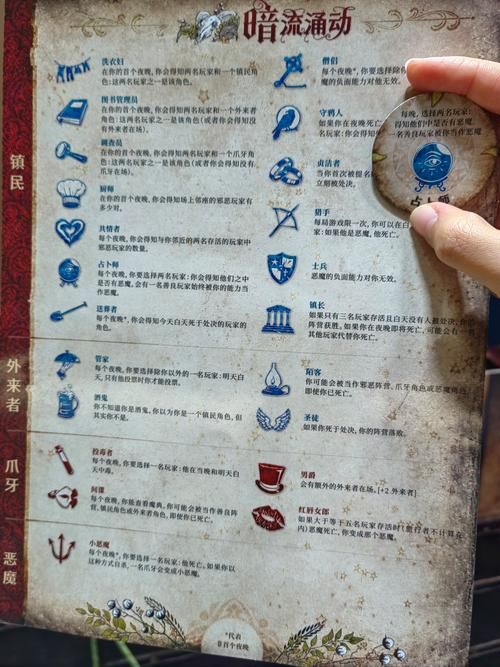 暗流涌动
镇民
洗衣妇
在你的首个夜晚，你会得知两名玩家和一个镇民角
色：这两名玩家之一是该角色。
图书管理员
在你的首个夜晚，你会得知两名玩家和一个外来者
角色：这两名玩家之一是该角色（或者你会得知没
有外来者在场）。
调查员
在你的首个夜晚，你会得知两名玩家和一个爪牙角
色：这两名玩家之一是该角色（或者你会得知没有
爪牙在场）。
厨师
在你的首个夜晚，你会得知场上邻座的邪恶玩家有
多少对。
共情者
每个夜晚，你会得知与你邻近的两名存活的玩家中
邪恶玩家的数量。
占卜师
每个夜晚，你要选择两名玩家：你会得知他们之中
是否有恶魔。会有一名善良玩家始终被你的能力当
作恶魔。
送葬者
每个夜晚*，你会得知今天白天死于处决的玩家的
角色。
僧侣
每个夜晚*，你要选择除你
魔的负面能力对他无效。
守鸦人
如果你在夜晚死亡
名玩家：你会得知
贞洁者
当你首次被提名
立刻被处决。
猎手
每局游戏限一次，你可以在白
家：如果他是恶魔，他死亡。
士兵
恶魔的负面能力对你无效。
镇长
如果只有三名玩家存活且白天没有人被处决，你的
阵营获胜。如果你在夜晚即将死亡，可能会有一名
其他玩家代替你死亡。
每晚，选择两名玩家：
得知他们中是否有恶魔。
一名善良玩家被你当作恶魔
占卜师
外来者
管家
每个夜晚，你要选择除你以外的一名玩家：明天白
天，只有他投票时你才能投票。
酒鬼
你不知道你是酒鬼。你以为你是一个镇民角色，但
其实你不是。
陌客
你可能会被当作邪恶阵营、爪牙角色或恶魔角色，
即使你已死亡。
圣徒
如果你死于处决，你的阵营落败。
爪牙
投毒者
每个夜晚，你要选择一名玩家：他在当晚和明天白
天中毒。
间谍
每个夜晚，你能查看魔典。你可能会被当作善良阵
营、镇民角色或外来者角色，即使你已死亡。
男爵
会有额外的外来者在场。[+2 外来者]
红唇女郎
如果大于等于五名玩家存活时（旅行者不计算在
内）恶魔死亡，你变成那个恶魔。
恶魔
小恶魔
每个夜晚*，你要选择一名玩家：他死亡。如果你以
这种方式自杀，一名爪牙会变成小恶魔。
*代表
非首个夜晚